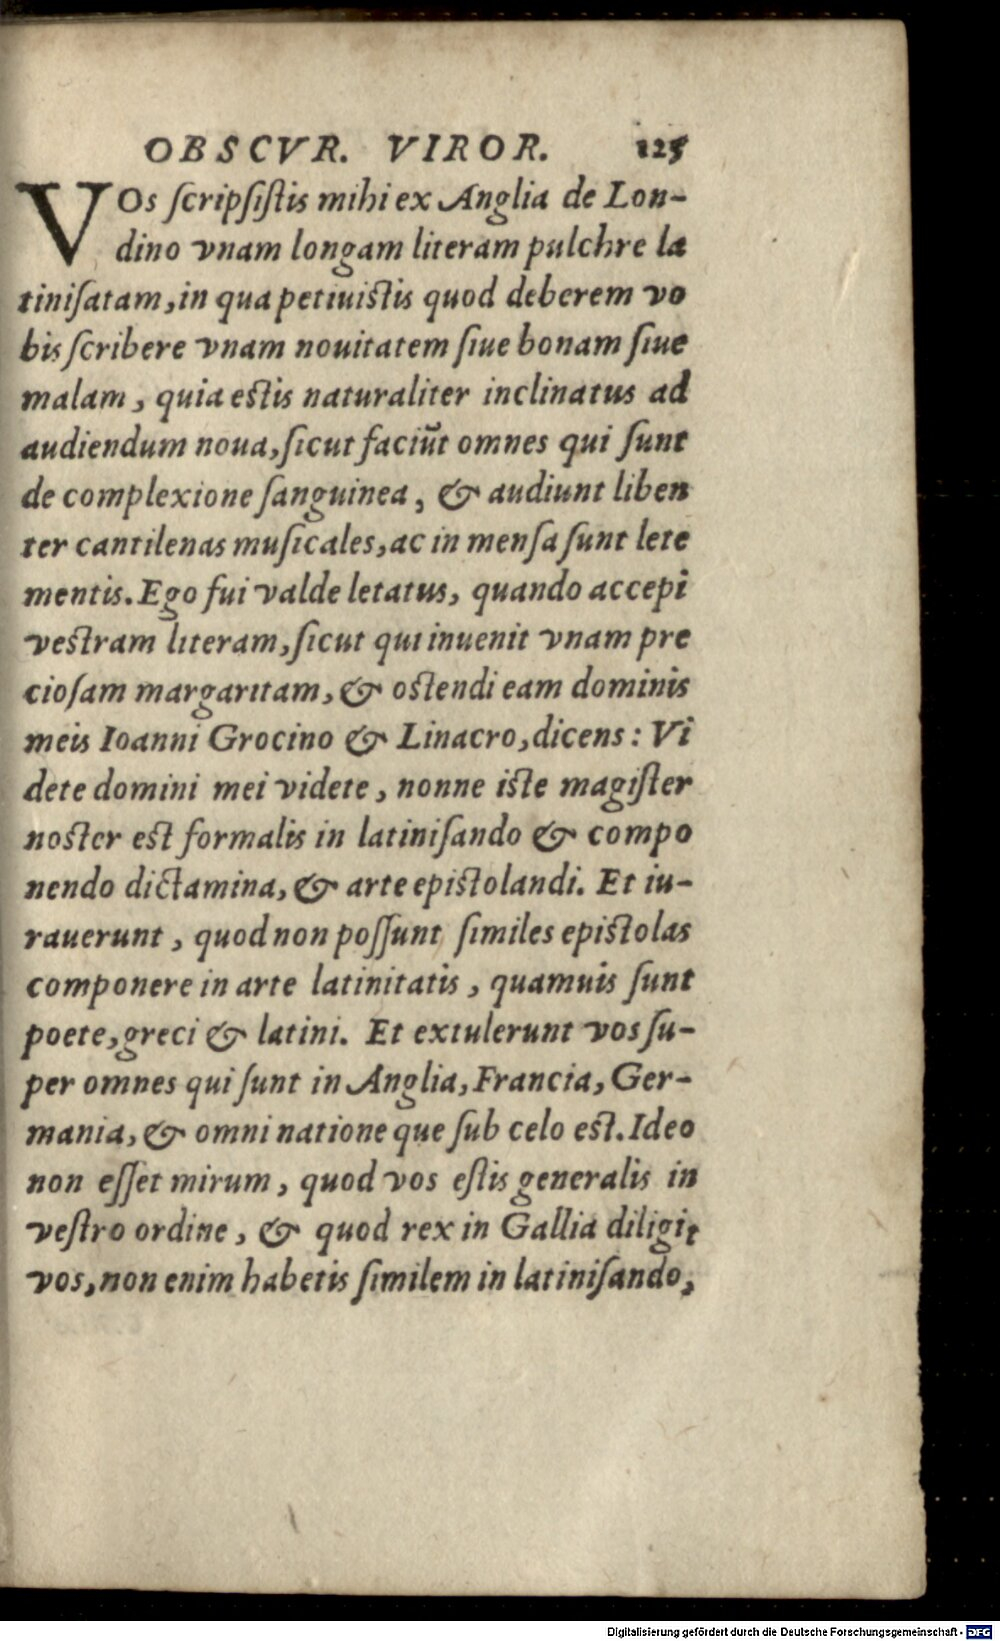 OBSCVR. VIROR. 125
VOs ſcripſiſtis mihi ex Anglia de Lon-
dino vnam longam literam pulchre la
tiniſatam, in qua petiuiſtis quod deberem vo
bis ſcribere vnam nouitatem ſiue bonam ſiue
malam, quia eſtis naturaliter inclinatus ad
audiendum noua, ſicut faciūt omnes qui ſunt
de complexione ſanguinea, & audiunt liben
ter cantilenas muſicales, ac in menſa ſunt lete
mentis. Ego fui valde letatus, quando accepi
veſtram literam, ſicut qui inuenit vnam pre
cioſam margaritam, & oſtendi eam dominis
meis Ioanni Grocino & Linacro, dicens: Vi
dete domini mei videte, nonne iſte magiſter
noſter eſt formalis in latiniſando & compo
nendo dictamina, & arte epiſtolandi. Et iu-
rauerunt, quod non poſſunt ſimiles epiſtolas
componere in arte latinitatis, quamuis ſunt
poete, greci & latini. Et extulerunt vos ſu-
per omnes qui ſunt in Anglia, Francia, Ger-
mania, & omni natione que ſub celo eſt. Ideo
non eſſet mirum, quod vos eſtis generalis in
veſtro ordine, & quod rex in Gallia diligit
vos, non enim habetis ſimilem in latiniſando,
Digitalisierung gefördert durch die Deutsche Forschungsgemeinschaft - DFG